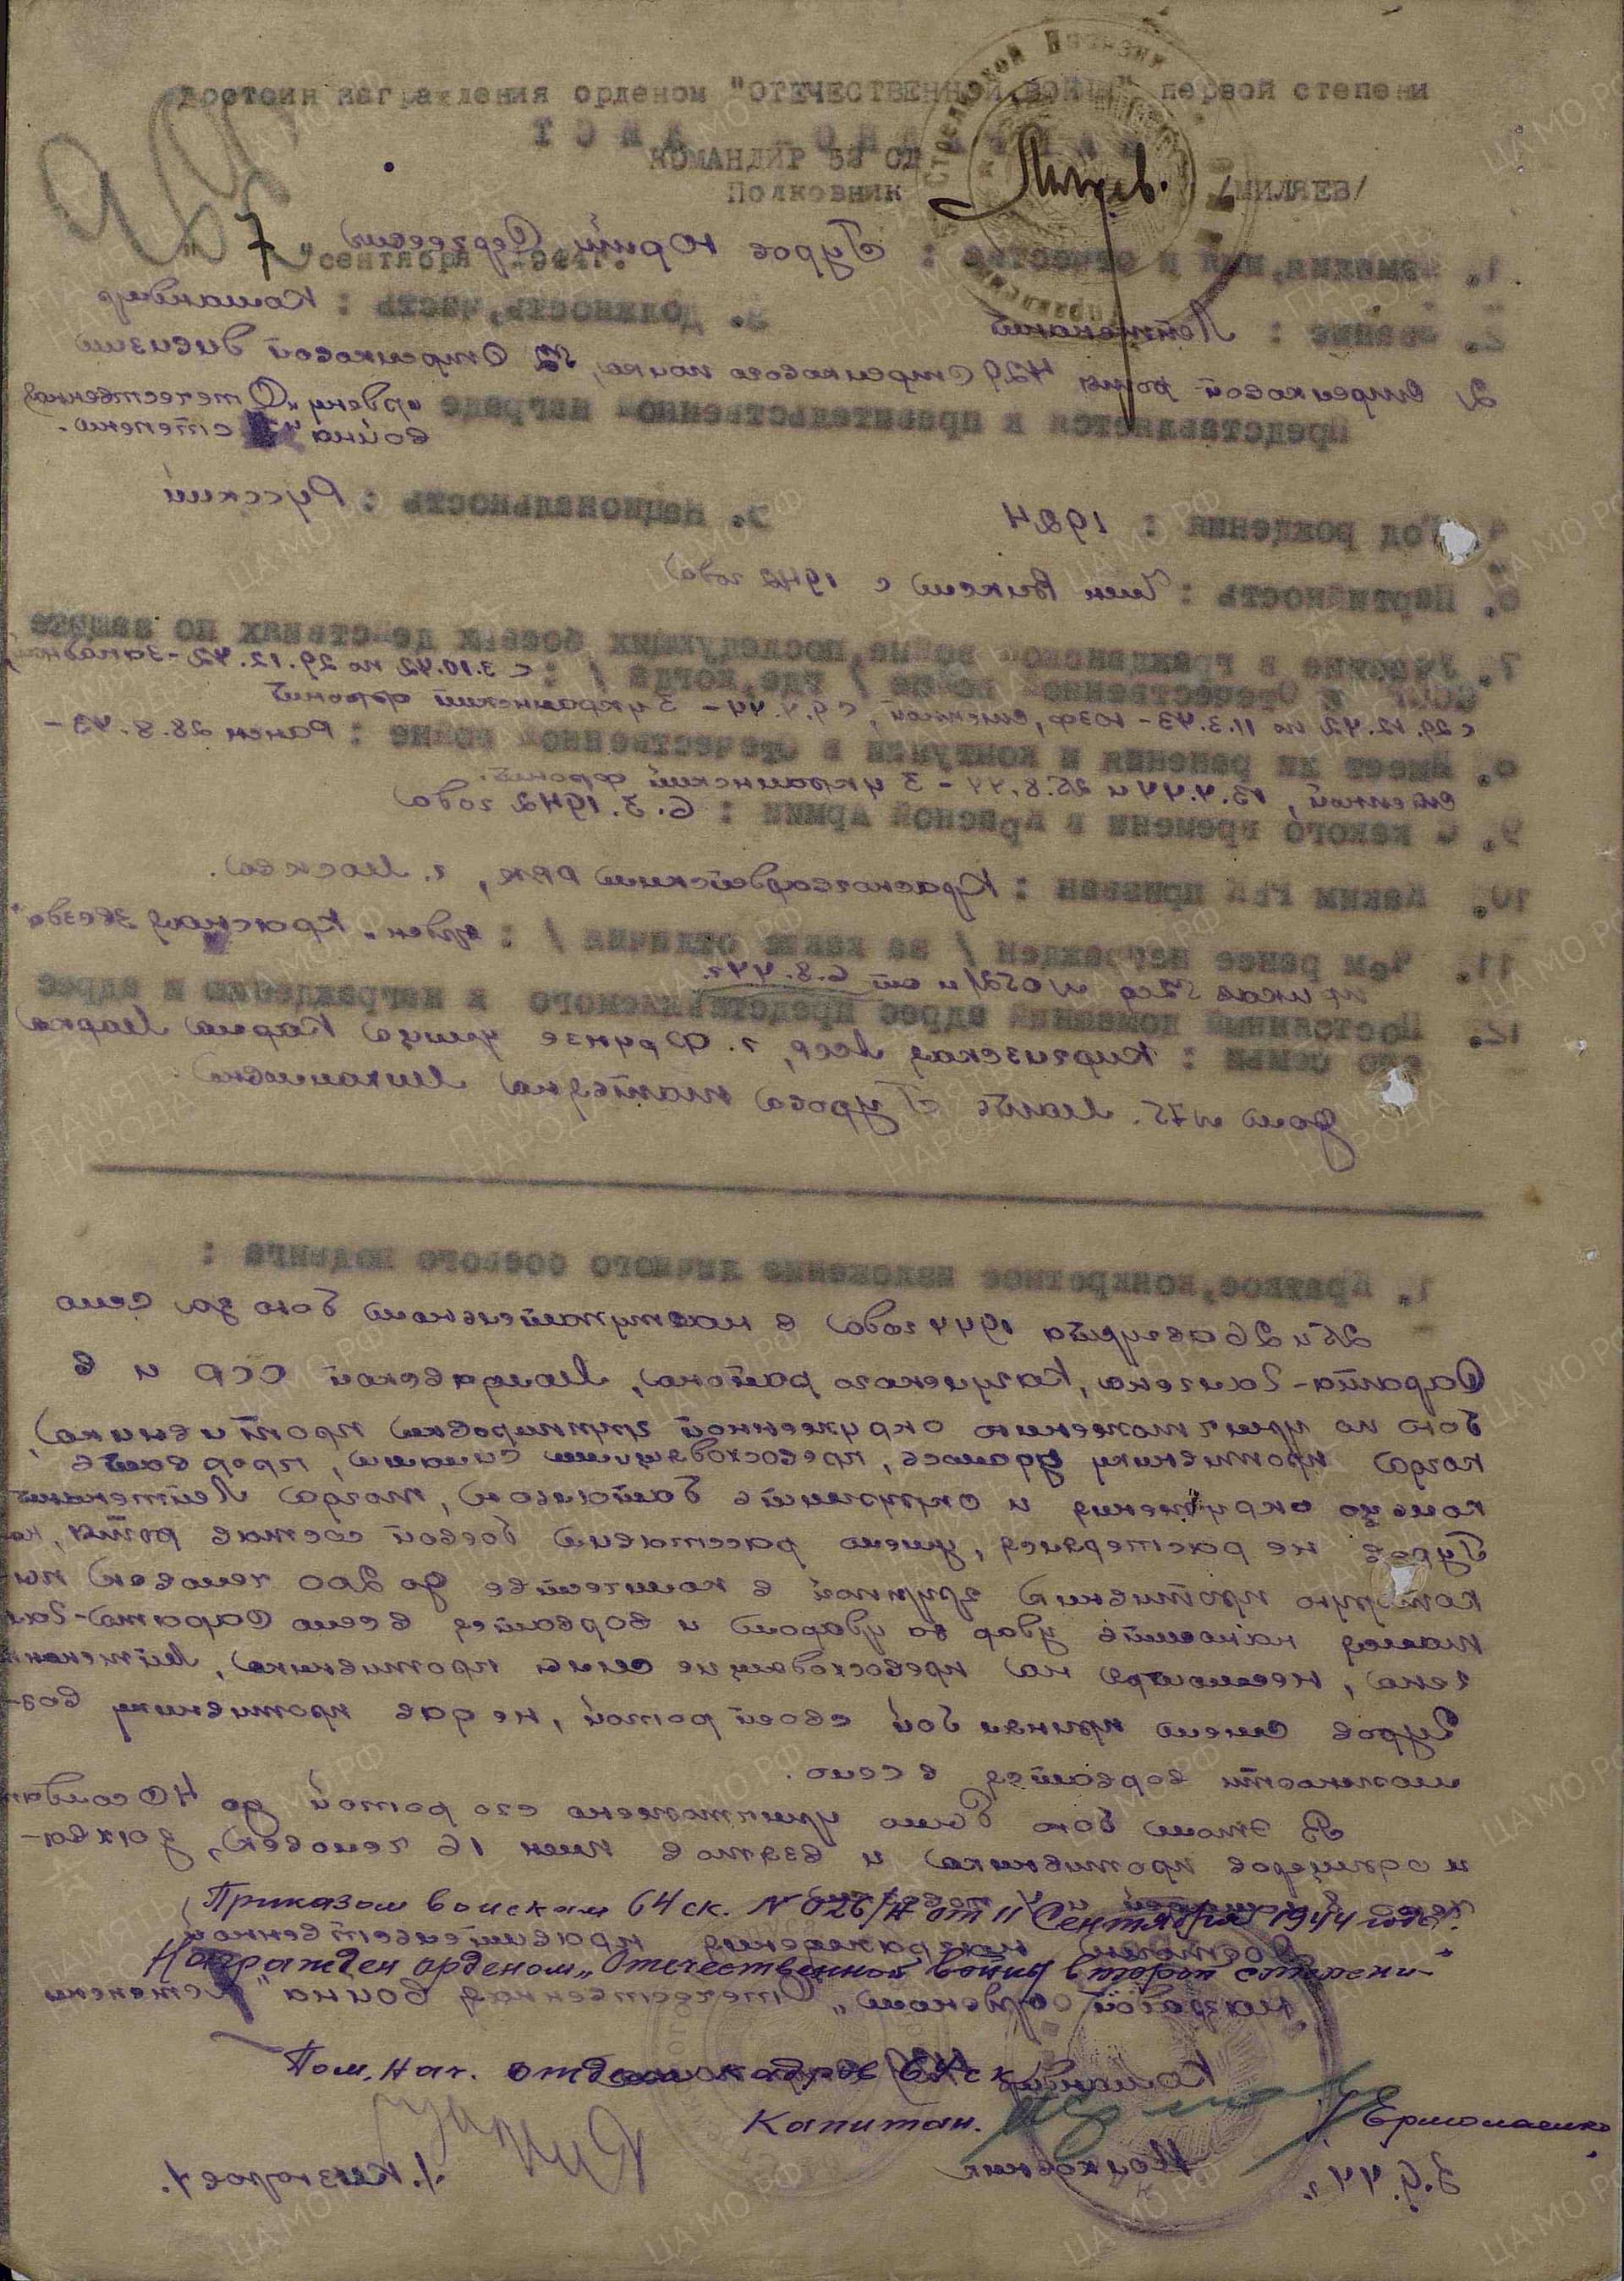 достоин награждения орденом "ОТЕЧЕСТВЕННОЙ ВОЙНЫ" первой степени
НАГРАДНОЙ ЛИСТ
КОМАНДИР 52 СД
Полковник /МИЛЯЕВ/
"7" сентября 1944г.
1. Фамилия, имя и отчество : Гуров Юрий Сергеевич
2. Звание : Лейтенант 3. Должность, часть : Командир
2 стрелковой роты 429 Стрелкового полка, 52 Стрелковой дивизии
Представляется к правительственной награде ордену "Отечественная
война" степени.
4. Год рождения : 1924 5. Национальность : Русский
6. Партийность : Член ВЛКСМ с 1942 года
7. Участие в гражданской войне, последующих боевых действиях по защите
СССР и Отечественной войне / где, когда / : с 3.10.42 по 29.12.42 - Западный
с 29.12.42 по 11.3.43 - Юзф, степной, с 9.4.44 - 3 украинский фронт
8. Имеет ли ранения и контузии в отечественной войне : Ранен 28.8.43 -
степной, 13.4.44 и 25.8.44 - 3 украинский фронт.
9. С какого времени в Красной Армии : 6.3.1942 года
10. Каким РВК призван : Красногвардейским РВК, г. Москва.
11. Чем ранее награжден / за какие отличия / : орден "Красная Звезда"
приказ 52сд №052/н от 6.8.44г.
12. Постоянный домашний адрес представляемого к награждению и адрес
его семьи : Киргизская ССР, г. Фрунзе улица Карла Маркса
дом №75. Мать Гурова
1. Краткое, конкретное изложение личного боевого подвига :
25 и 26 августа 1944 года в наступательном бою за село
Сарата-Галбена, Молдавской ССР и в
бою по уничтожению окруженной группировки противника,
когда противнику удалось, превосходящими силами, прорвать
кольцо окружения и окружить батальон, тогда Лейтенант
Гуров не растерялся, умело расставил боевой состав роты, на
которую противник группой в количестве до 200 человек пы-
тался наносить удар за ударом и ворваться в село Сарата-Гал-
бена, несмотря на превосходящие силы противника, Лейтенант
Гуров смело принял бой своей ротой, не дав противнику воз-
можности ворваться в село.
В этом бою было уничтожено его ротой до 40 солдат
и офицеров противника и взято в плен 16 человек, захва-
Приказом войскам 64 ск. №026/Н от 11 Сентября 1944 года.
Достоин награждения правительственной
Награжден орденом "Отечественной войны второй степени"
наградой орденом "Отечественная война" степени
Пом. нач. отдела кадров 64 ск
Командир
Капитан. /Ермолаенко
Полковник /Кизюров/.
3.9.44 г.